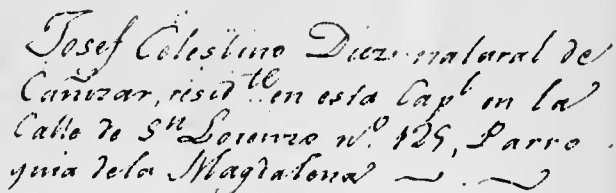 Josef Celestino Diez natural de
Cañizar, resid.te en esta Capl en la
Calle de Sn Lorenzo nº. 125, Parro
quia dela Magdalena